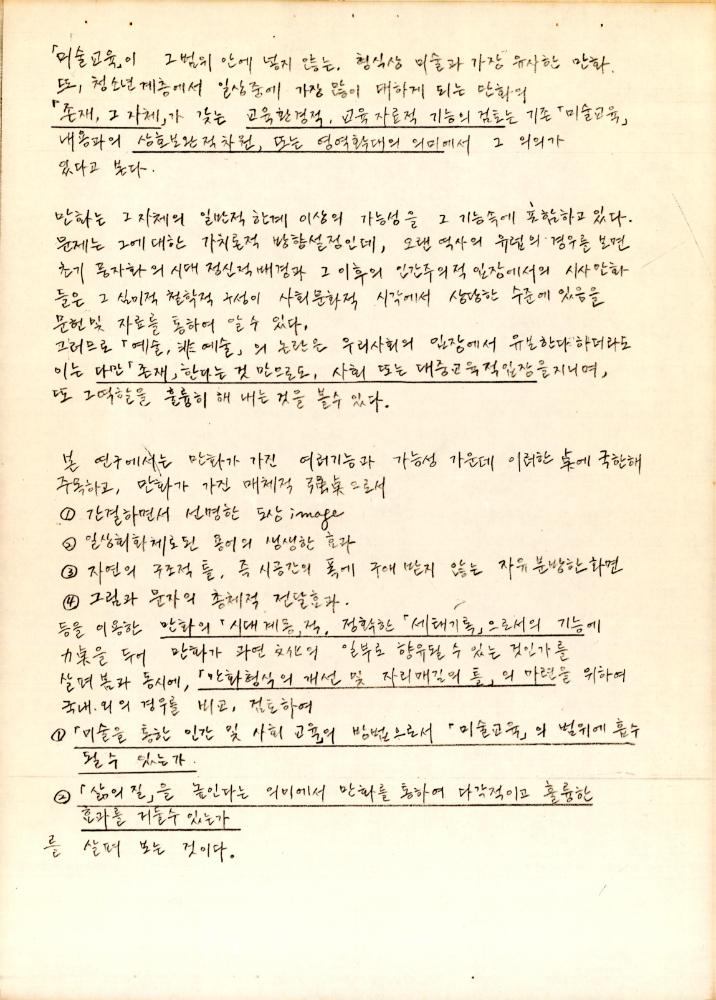 「미술교육」이 그 범위 안에 넣지 않는, 형식상 미술과 가장 유사한 만화.
또, 청소년 계층에서 일상중에 가장 많이 대하게 되는 만화의
「존재, 그 자체」가 갖는 교육환경적, 교육자료적 기능의 검토는 기존 「미술교육」
내용과의 상호보완적차원, 또는 영역확대의 의미에서 그 의의가
있다고 본다.
만화는 그 자체의 일반적 한계 이상의 가능성을 그 기능속에 포함하고 있다.
문제는 그에 대한 가치론적 방향설정인데, 오랜 역사의 유럽의 경우를 보면
초기 풍자화의 시대 정신적 배경과 그 이후의 인간주의적 입장에서의 시사만화
들은 그 심미적 철학적 구성이 사회문화적 시각에서 상당한 수준에 있음을
문헌 및 자료를 통하여 알 수 있다.
그러므로 「예술, 非예술」의 논란은 우리사회의 입장에서 유보한다 하더라도
이는 다만 「존재」한다는 것 만으로도, 사회 또는 대중교육적입장을 지니며,
또 그역할을 훌륭히 해 내는 것을 볼수 있다.
본 연구에서는 만화가 가진 여러기능과 가능성 가운데 이러한 点에 국한해
주목하고, 만화가 가진 매체적 强点으로서
① 간결하면서 선명한 도상 image
② 일상회화체로된 용어의 생생한 효과
③ 자연의 구조적 틀, 즉 시공간의 폭에 구애 받지 않는 자유분방한 화면
④ 그림과 문자의 총체적 전달효과.
등을 이용한 만화의 「시대계몽」적, 정확한 「세태기록」으로서의 기능에
力点을 두어 만화가 과연 文化의 일부로 향유될 수 있는 것인가를
살펴 봄과 동시에, 「만화형식의 개선 및 자리매김의 틀」의 마련을 위하여
국내.외의 경우를 비교, 검토하여
① 「미술을 통한 인간 및 사회 교육의 방법으로서 「미술교육」의 범위에 흡수
될 수 있는가.
② 「삶의 질」을 높인다는 의미에서 만화를 통하여 다각적이고 훌륭한
효과를 거둘수 있는가
를 살펴 보는 것이다.